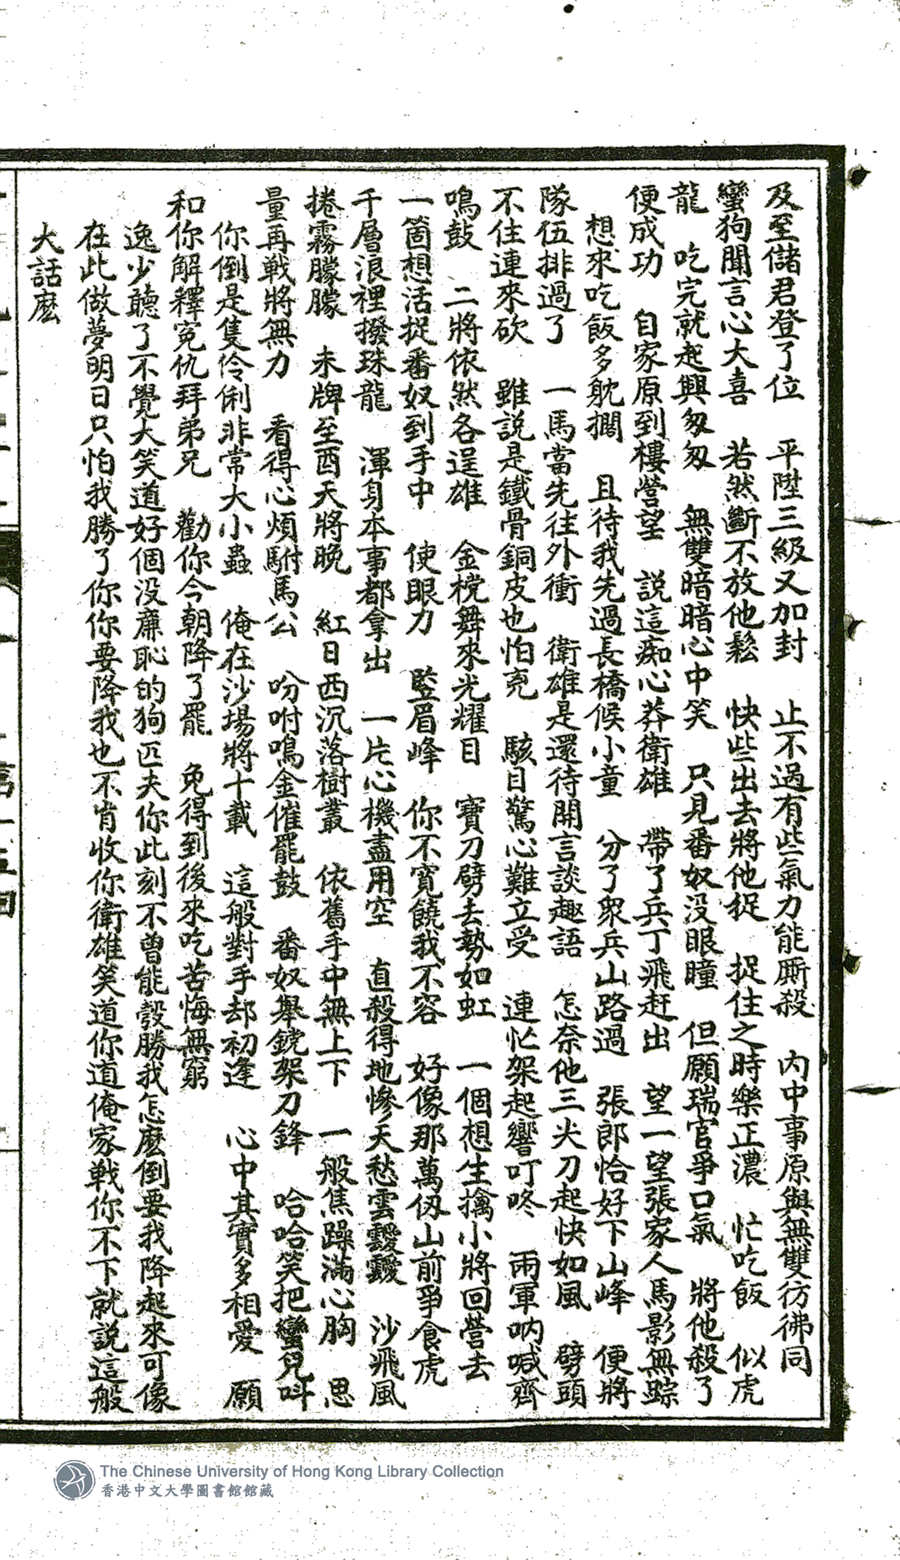 及至儲君登了位　平陞三級又加封　止不過有些氣力能厮殺　內中事原與無雙彷彿同
蠻狗聞言心大喜　若然斷不放他鬆　快些出去將他捉　捉住之時樂正濃　忙吃飯　似虎
龍　吃完就起興匆匆　無雙暗暗心中笑　只見番奴没眼瞳　但願瑞官爭口氣　將他殺了
便成功　自家原到樓營望　說這痴心莽衛雄　帶了兵丁飛赶出　望一望張家人馬影無踪
想來吃飯多躭擱　且待我先過長橋候小童　分了眾兵山路過　張郎恰好下山峰　便將
隊伍排過了　一馬當先往外衝　衛雄是還待開言談趣語　怎奈他三尖刀起快如風　劈頭
不住連來砍　雖説是鐵骨銅皮也怕兇　駭目驚心難立受　連忙架起響叮咚　兩軍吶喊齊
鳴鼓　二將依然各逞雄　金棁舞來光耀目　寶刀劈去勢如虹　一個想生擒小將回營去
一箇想活捉番奴到手中　使眼力　竪眉峰　你不寬饒我不容　好像那萬仭山前爭食虎
千層浪裡撥珠龍　渾身本事都拿出　一片心機盡用空　直殺得地慘天愁雲靉靆　沙飛風
捲霧朦朦　未牌至酉天將晚　紅日西沉落樹叢　依舊手中無上下　一般焦躁滿心胸　思
量再戰將無力　看得心煩駙馬公　吩咐鳴金催罷鼓　番奴舉鎲架刀鋒　哈哈笑把蠻兒呌
你倒是隻伶俐非常大小蟲　俺在沙場將十載　這般對手却初逢　心中其實多相愛　願
和你解釋寃仇拜弟兄　勸你今朝降了罷　免得到後來吃苦悔無窮
逸少聽了不覺大笑道好個没廉恥的狗匹夫你此刻不曾能彀勝我怎麽倒要我降起來可像
在此做夢明日只怕我勝了你你要降我也不肯收你衛雄笑道你道俺家戰你不下就説這般
大話麽